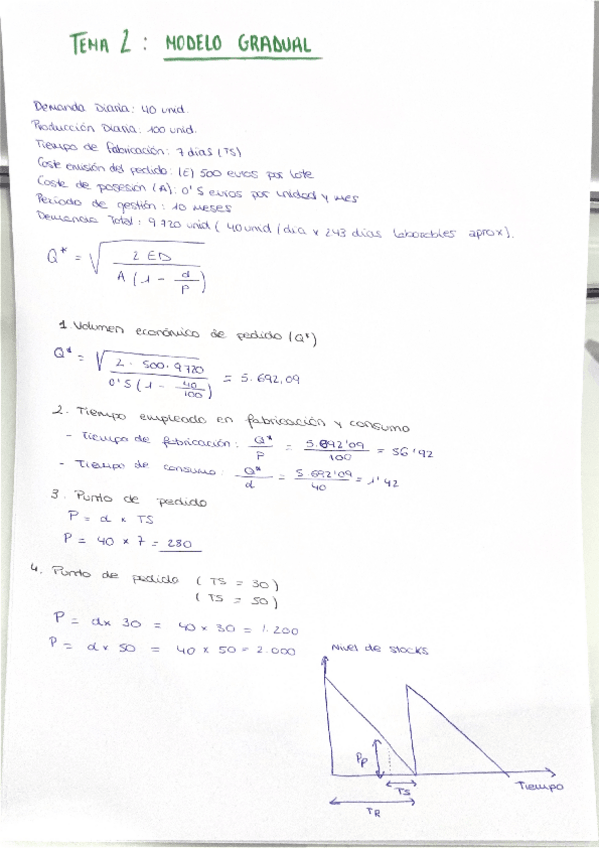 TEMA 2 : MODELO GRADUAL
Demanda Diaria: 40 unid.
Producción Diaria: 100 unid.
Tiempo de fabricación: 7 días (TS)
Coste emisión del pedido: (E) 500 euros por lote
Coste de posesión (A): 0'5 euros por unidad y mes
Periodo de gestión: 10 meses
Demanda Total: 9720 unid (40 unid/dia x 243 días laborables aprox).
Q* = √ 2 ED / A (1 - d/P)
1. Volumen económico de pedido (Q*)
Q* = √ 2 · 500 · 9720 / 0'5 (1 - 40/100) = 5.692,09
2. Tiempo empleado en fabricación y consumo
- Tiempo de fabricación: Q*/P = 5.692'09/100 = 56'92
- Tiempo de consumo: Q*/d = 5.692'09/40 = 1'42
3. Punto de pedido
P = d x TS
P = 40 x 7 = 280
4. Punto de pedido (TS = 30)
(TS = 50)
P = d x 30 = 40 x 30 = 1.200
P = d x 50 = 40 x 50 = 2.000
Nivel de stocks
Pp
TS
Tiempo
TR